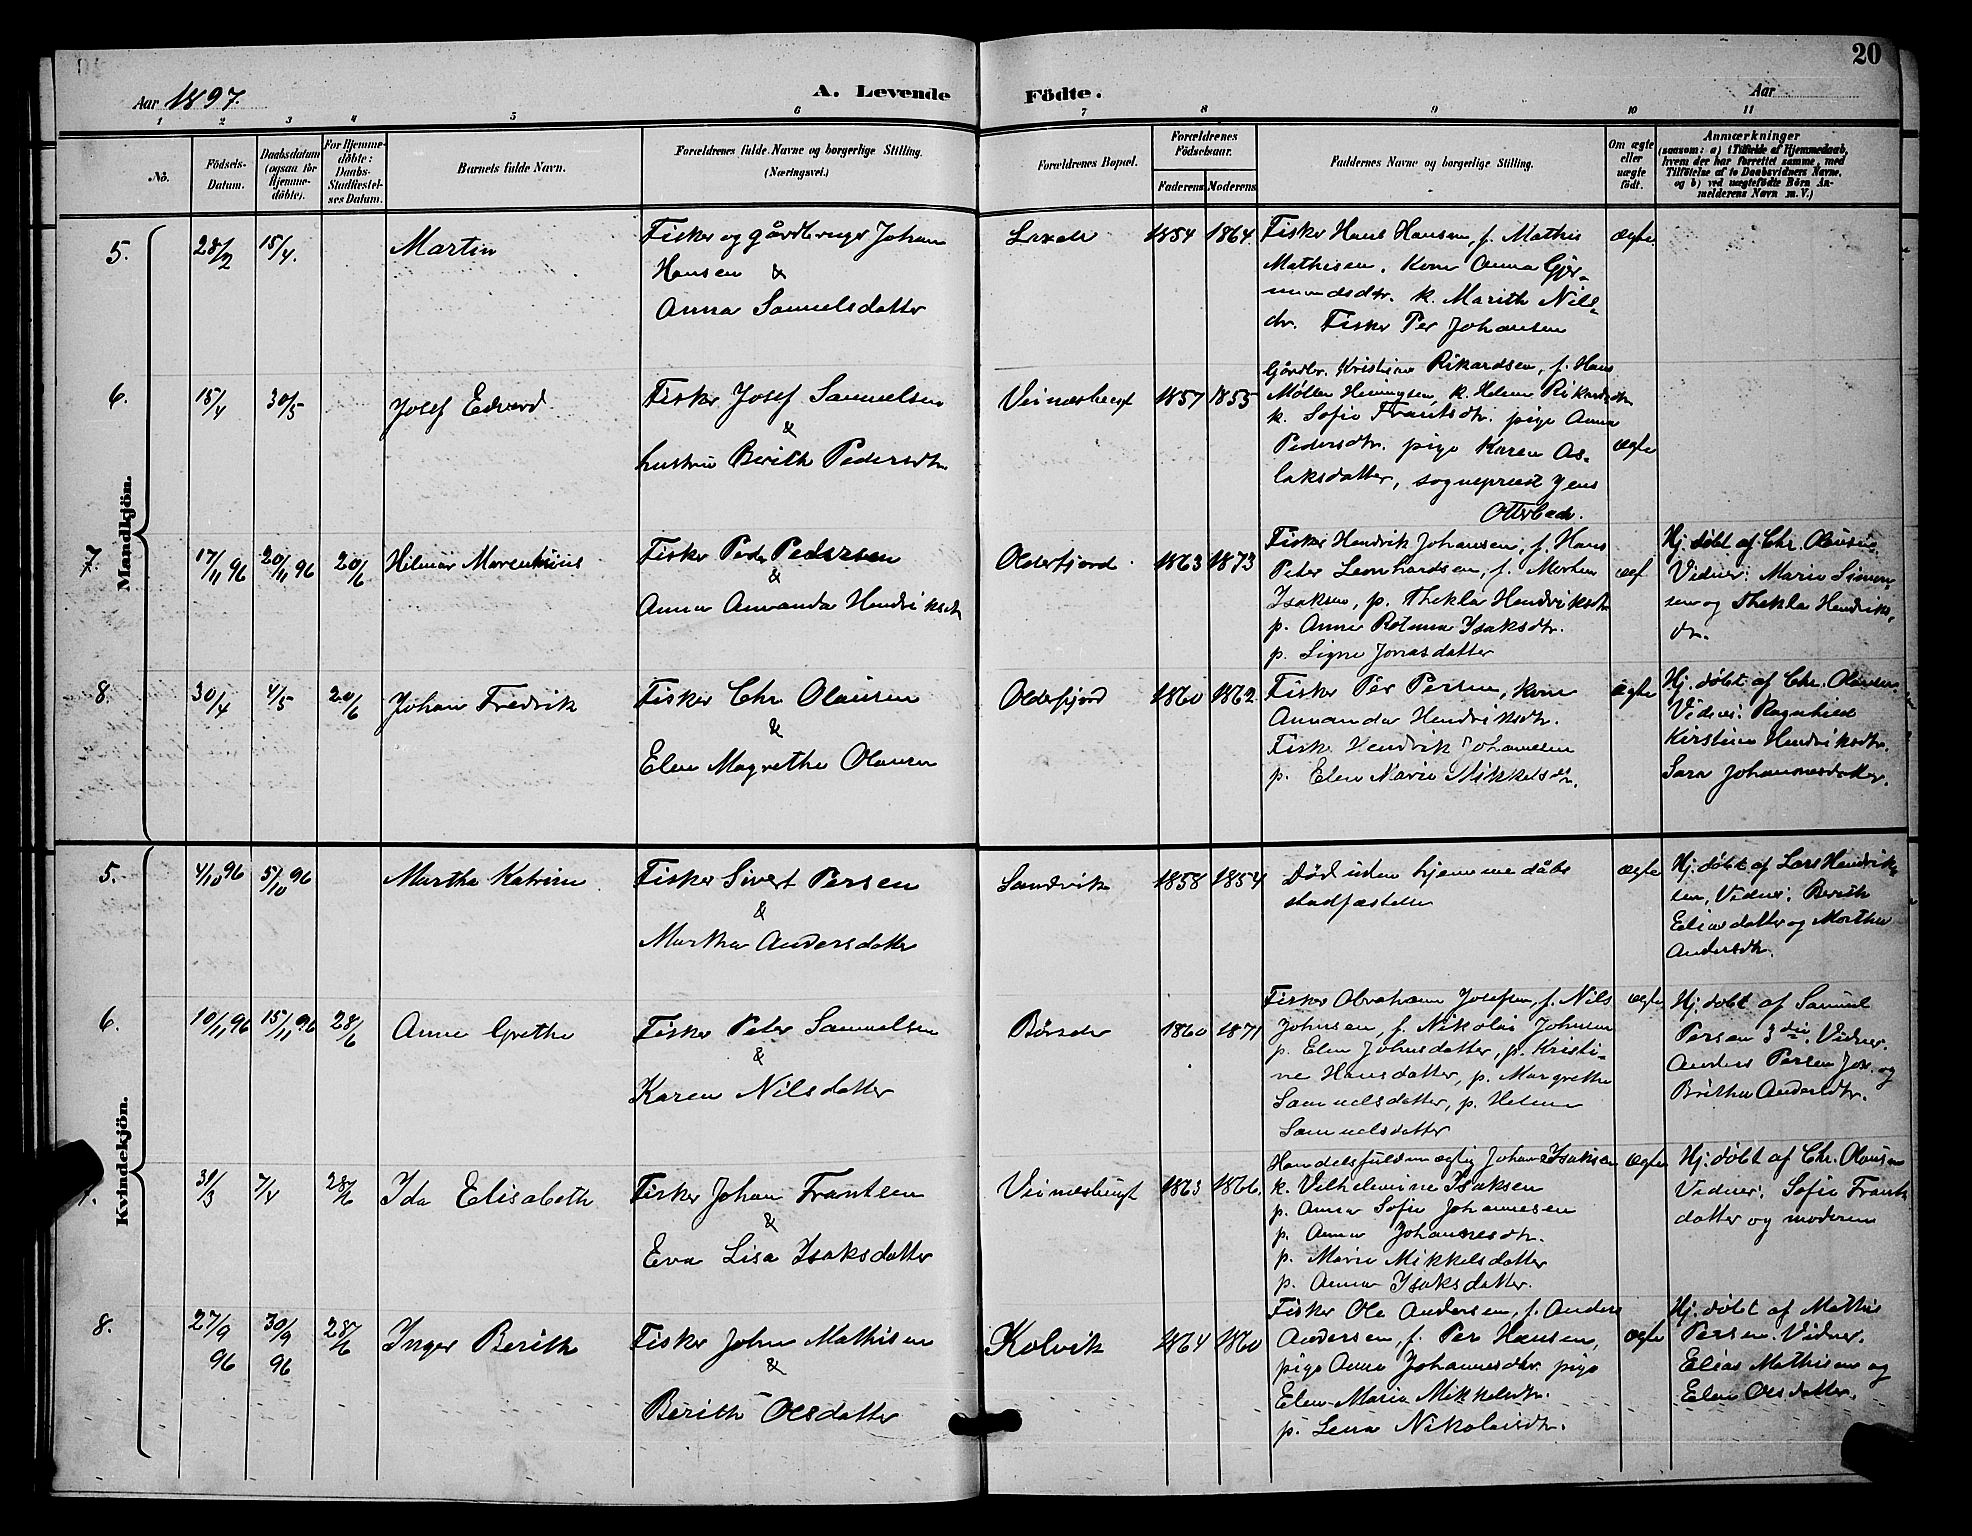 20
Aar 1897.
A. Levende Födte.
Aar
1 2 3 4 5 6 7 8 9 10 11
No.
Födsels-
Datum.
Daabsdatum
(ogsaa for
Hjemme-
döbte).
For Hjemme-
döbte:
Daabs-
Stadfæstel-
ses Datum.
Barnets fulde Navn.
Forældrenes fulde Navne og borgerlige Stilling.
(Næringsvei.)
Forældrenes Bopæl.
Forældrenes
Födselsaar.
Faderens Moderens
Faddernes Navne og borgerlige Stilling.
Om ægte
eller
uægte
födt.
Anmærkninger
(saasom: a) i Tilfælde af Hjemmedaab,
hvem der har forrettet samme, med
Tilföielse af to Daabsvidners Navne,
og b) ved uægtefödte Börn An-
melderens Navn m. V.)
Mandkjön.
5.
28/2
15/4.
Martin
Fisker og gårdbruger Johan
Hansen &
Anna Samuelsdatter
1854 1864
Fisker Hans Hansen, f. Mathis
Mathisen. Kone Anna Gjer-
mundsdtr. k. Marith Nils-
dtr. Fisker Per Johansen
ægte
6.
15/4
30/5
Josef Edvard
Fisker Josef Samuelsen
&
hustru Berith Pedersdtr.
1857 1855
Gårdbr. Kristian Rikardsen, f. Hans
Møller Henningsen, k. Helene Rikardsdtr
k. Sofie Frantsdtr. pige Anna
Pedersdtr. pige Karen As-
laksdatter, sogneprest Jens
Otterbech.
ægte
7.
17/11 96
20/11 96
20/6
Hilmar Marenthinius
Fisker Peder Pedersen
&
Anna Amanda Hendriksdtr
Olderfjord
1863 1873
Fisker Hendrik Johansen, f. Hans
Peter Leonhardsen, f. Morten
Isaksen, p. Thekla Hendriksdtr
p. Anne Isaksdtr.
p. Signe Jonasdatter
ægt
Hj. døbt af Chr. Olausen.
Vidner: Marie Simon-
sen og Thekla Hendriks-
dtr.
8.
30/4
4/5
20/6
Johan Fredrik
Fisker Chr Olausen
&
Elen Magrethe Olausen
Olderfjord
1860 1862
Fisker Per Persen, kone
Amanda Hendriksdtr.
Fisk. Hendrik Johannesen
p. Elen Marie Mikkelsdtr.
ægte
Hj. døbt af Chr. Olausen.
Vidner: Ragnhild
Kirstine Hendriksdtr.
Sara Johannesdatter.
Kvindekjön.
5.
4/10 96
5/10 96
Martha Katrine
Fisker Sivert Persen
&
Martha Andersdatter
Sandvik
1858 1854
Død uden hjemmedåbs
stadfæstelse
ægte
Hj. døbt af Lars Hendrik-
sen, Vidner: Berith
Eliasdatter og Martha
Andersdtr.
6.
10/11 96
15/11 96
28/6
Anne Grethe
Fisker Peter Samuelsen
&
Karen Nilsdatter
Børselv
1860 1871
Fisker Abraham Josefsen, f. Nils
Johnsen, f. Nikolai Johnsen
p. Elen Johnsdatter, p. Kristi-
ne Hansdatter, p. Margrethe
Samuelsdatter, p. Helene
Samuelsdatter
ægte
Hj. døbt af Samuel
Persen Vidner.
Anders Persen og
Britha Andersdtr.
7.
31/3
7/4
28/6
Ida Elisabeth
Fisker Johan Frantsen
&
Eva Lisa Isaksdatter
1863 1866
Handelsfuldmægtig Johan Isaksen
k. Vilhelmine Isaksen
p. Anna Sofie Johannesen
p. Anna Johannesdtr.
p. Marie Mikkelsdatter
p. Anna Isaksdatter.
ægte
Hj. døbt af Chr. Olausen
Vidner: Sofie Frants
datter og moderen
8.
27/9
96
30/9
96
28/6
Inger Berith
Fisker John Mathisen
&
Berith Olsdatter
Kolvik
1864 1860
Fisker Ole Andersen, f. Anders
Andersen, f. Per Hansen,
pige Anna Johannesdtr. pige
Elen Maria Mikkelsdtr.
p. Lena Nikolaisdtr.
ægte
Hj. døbt af Mathis
Persen. Vidner.
Elias Mathisen og
Elen Olsdatter.